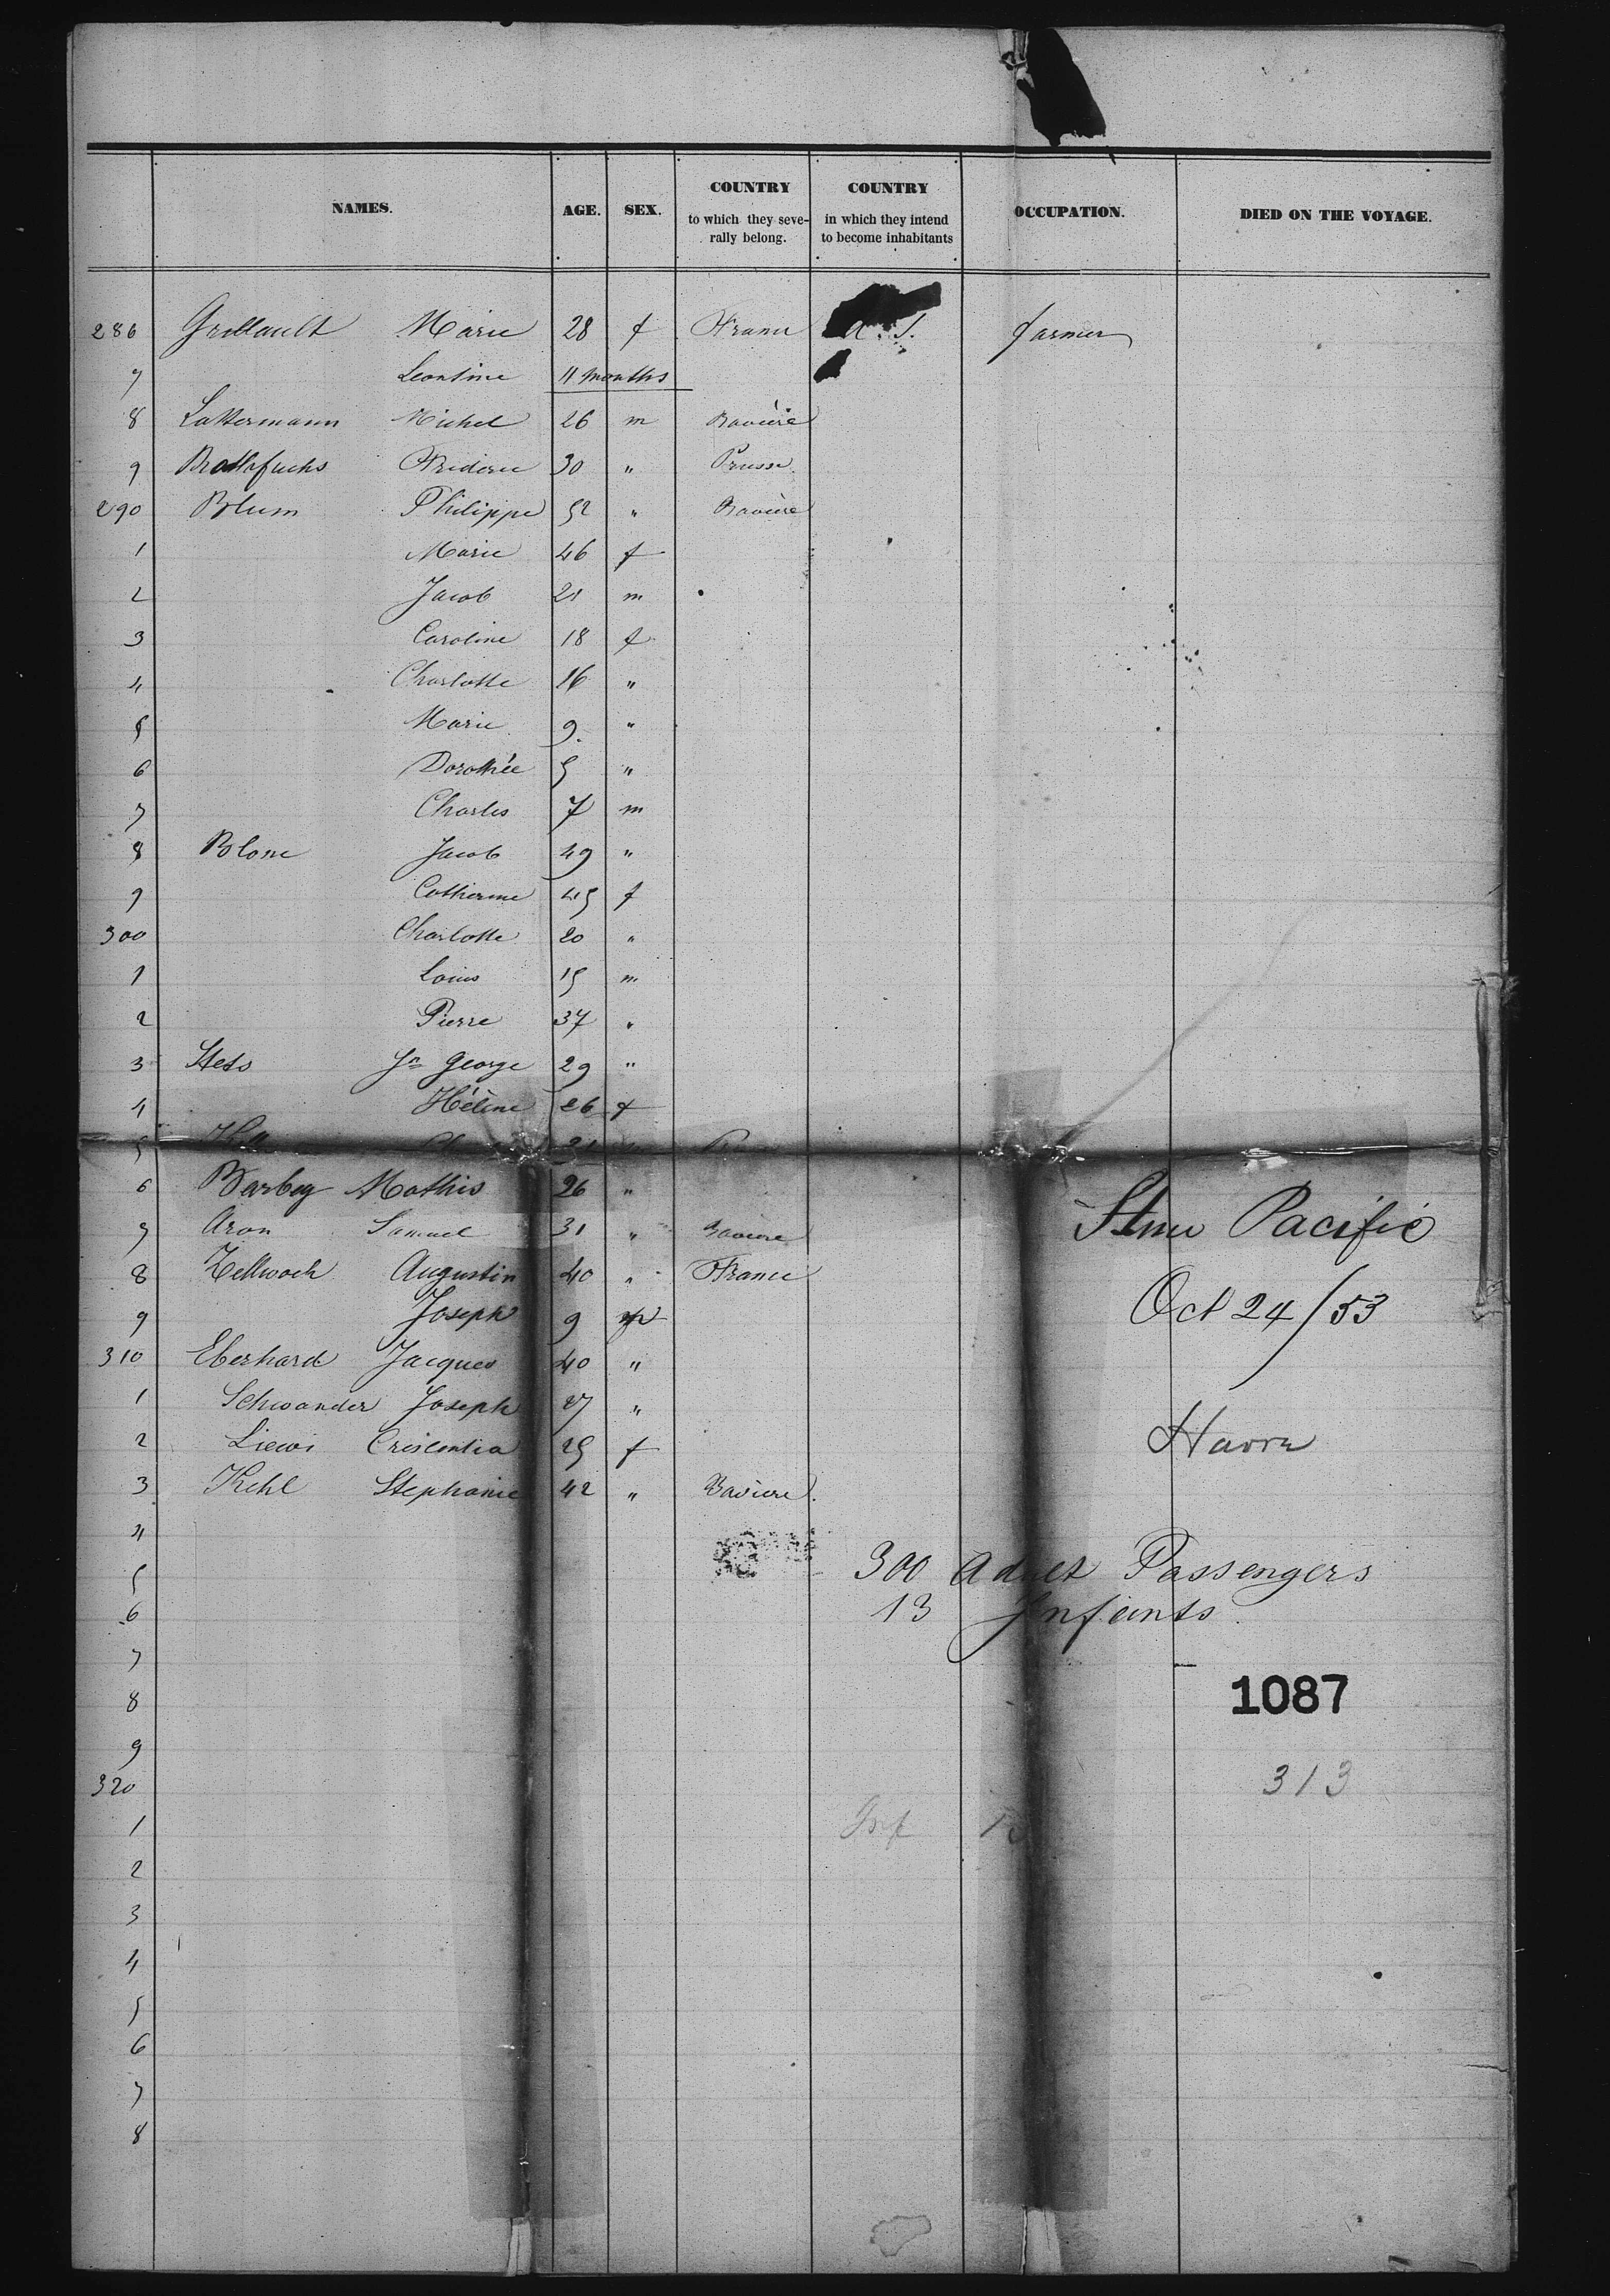 NAMES. AGE. SEX. COUNTRY to which they seve- rally belong. COUNTRY in which they intend to become inhabitants OCCUPATION. DIED ON THE VOYAGE.
286 Marie 28 f France S. farmer
7 Leontine 11 months
8 Lattermann Michel 26 m Bavière
9 30 " Prusse
290 Blum Philippe 52 " Bavière
1 Marie 46 f
2 Jacob 21 m
3 Caroline 18 f
4 Charlotte 16 "
5 Marie 9 "
6 Dorothée 5 "
7 Charles 7 m
8 Jacob 49 "
9 Catherine 45 f
300 Charlotte 20 "
1 Louis 15 m
2 Pierre 37 "
3 Jn George 29 "
4 Hélène 26 f
5
6 Barbey Mathis 26 "
7 Aron Samuel 31 " Baviere
8 Zellwoch Augustin 40 " France
9 Joseph 9 m
310 Eberhard Jacques 40 "
1 Schwander Joseph 27 "
2 Liewi Crescentia 25 f
3 Kehl Stephanie 42 " Baviere.
4
5
6
7
8
9
320
1
2
3
4
5
6
7
8
Pacific
Oct 24/53
Havre
300 Adult Passengers
13 Infants.
1087
313
Inf